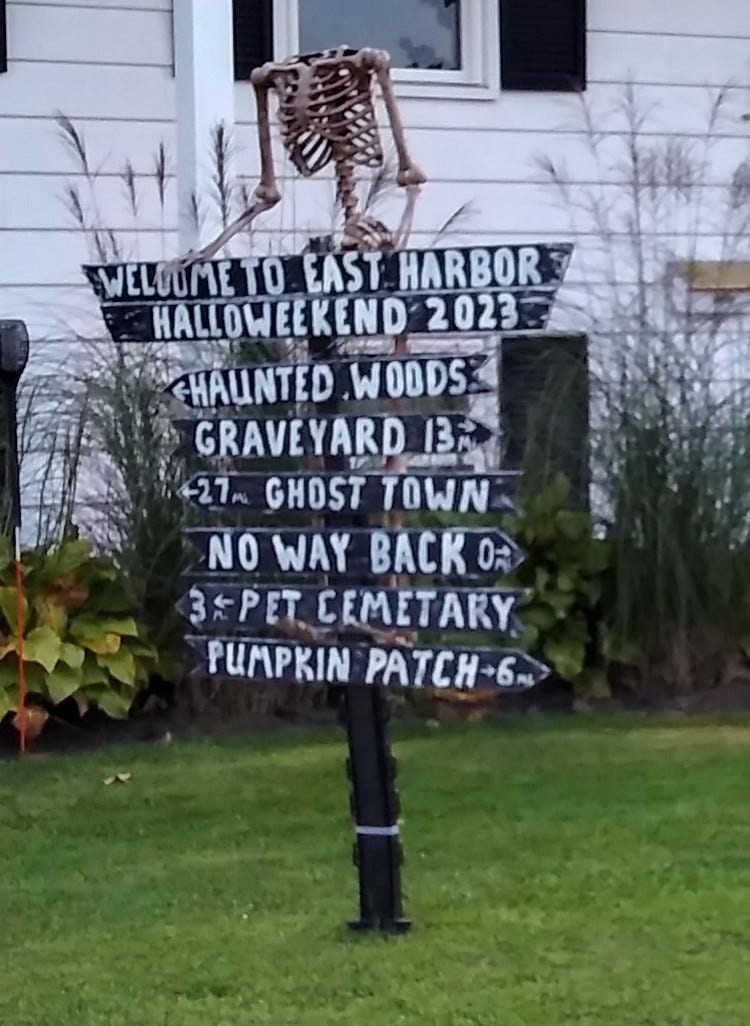 WELCOME TO EAST HARBOR
HALLOWEEKEND 2023
←HAUNTED WOODS
GRAVEYARD 13 MI→
←27 MI GHOST TOWN
NO WAY BACK 0 MI→
3 MI← PET CEMETARY
PUMPKIN PATCH→6 MI